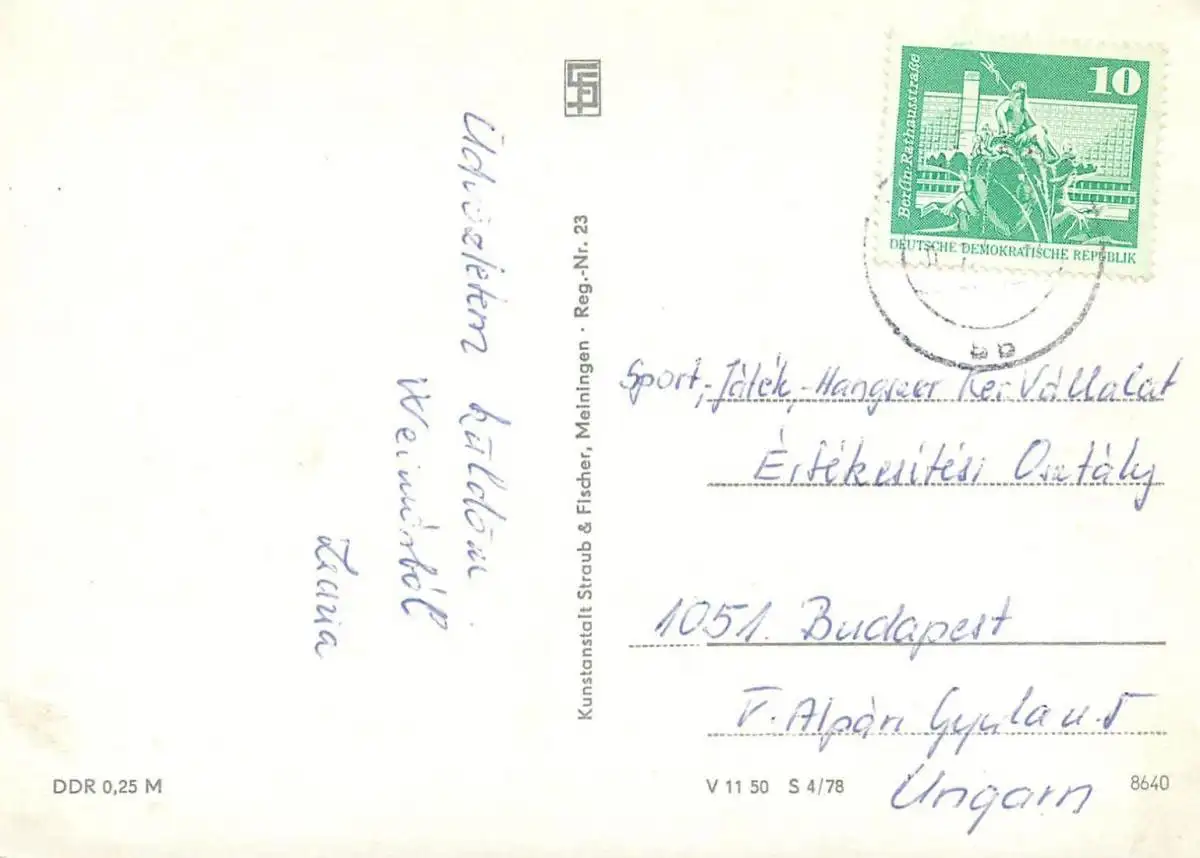 Üdvözletem küldöm
Weimárból
Kunstanstalt Straub & Fischer, Meiningen · Reg.-Nr. 23
10
Berlin-Rathausstraße
DEUTSCHE DEMOKRATISCHE REPUBLIK
Sport-, Játék-, Hangszer Ker Vállalat
Értékesítési Osztály
1051. Budapest
V. Alpári Gyula u. 5
Ungarn
DDR 0,25 M
V 11 50 S 4/78
8640